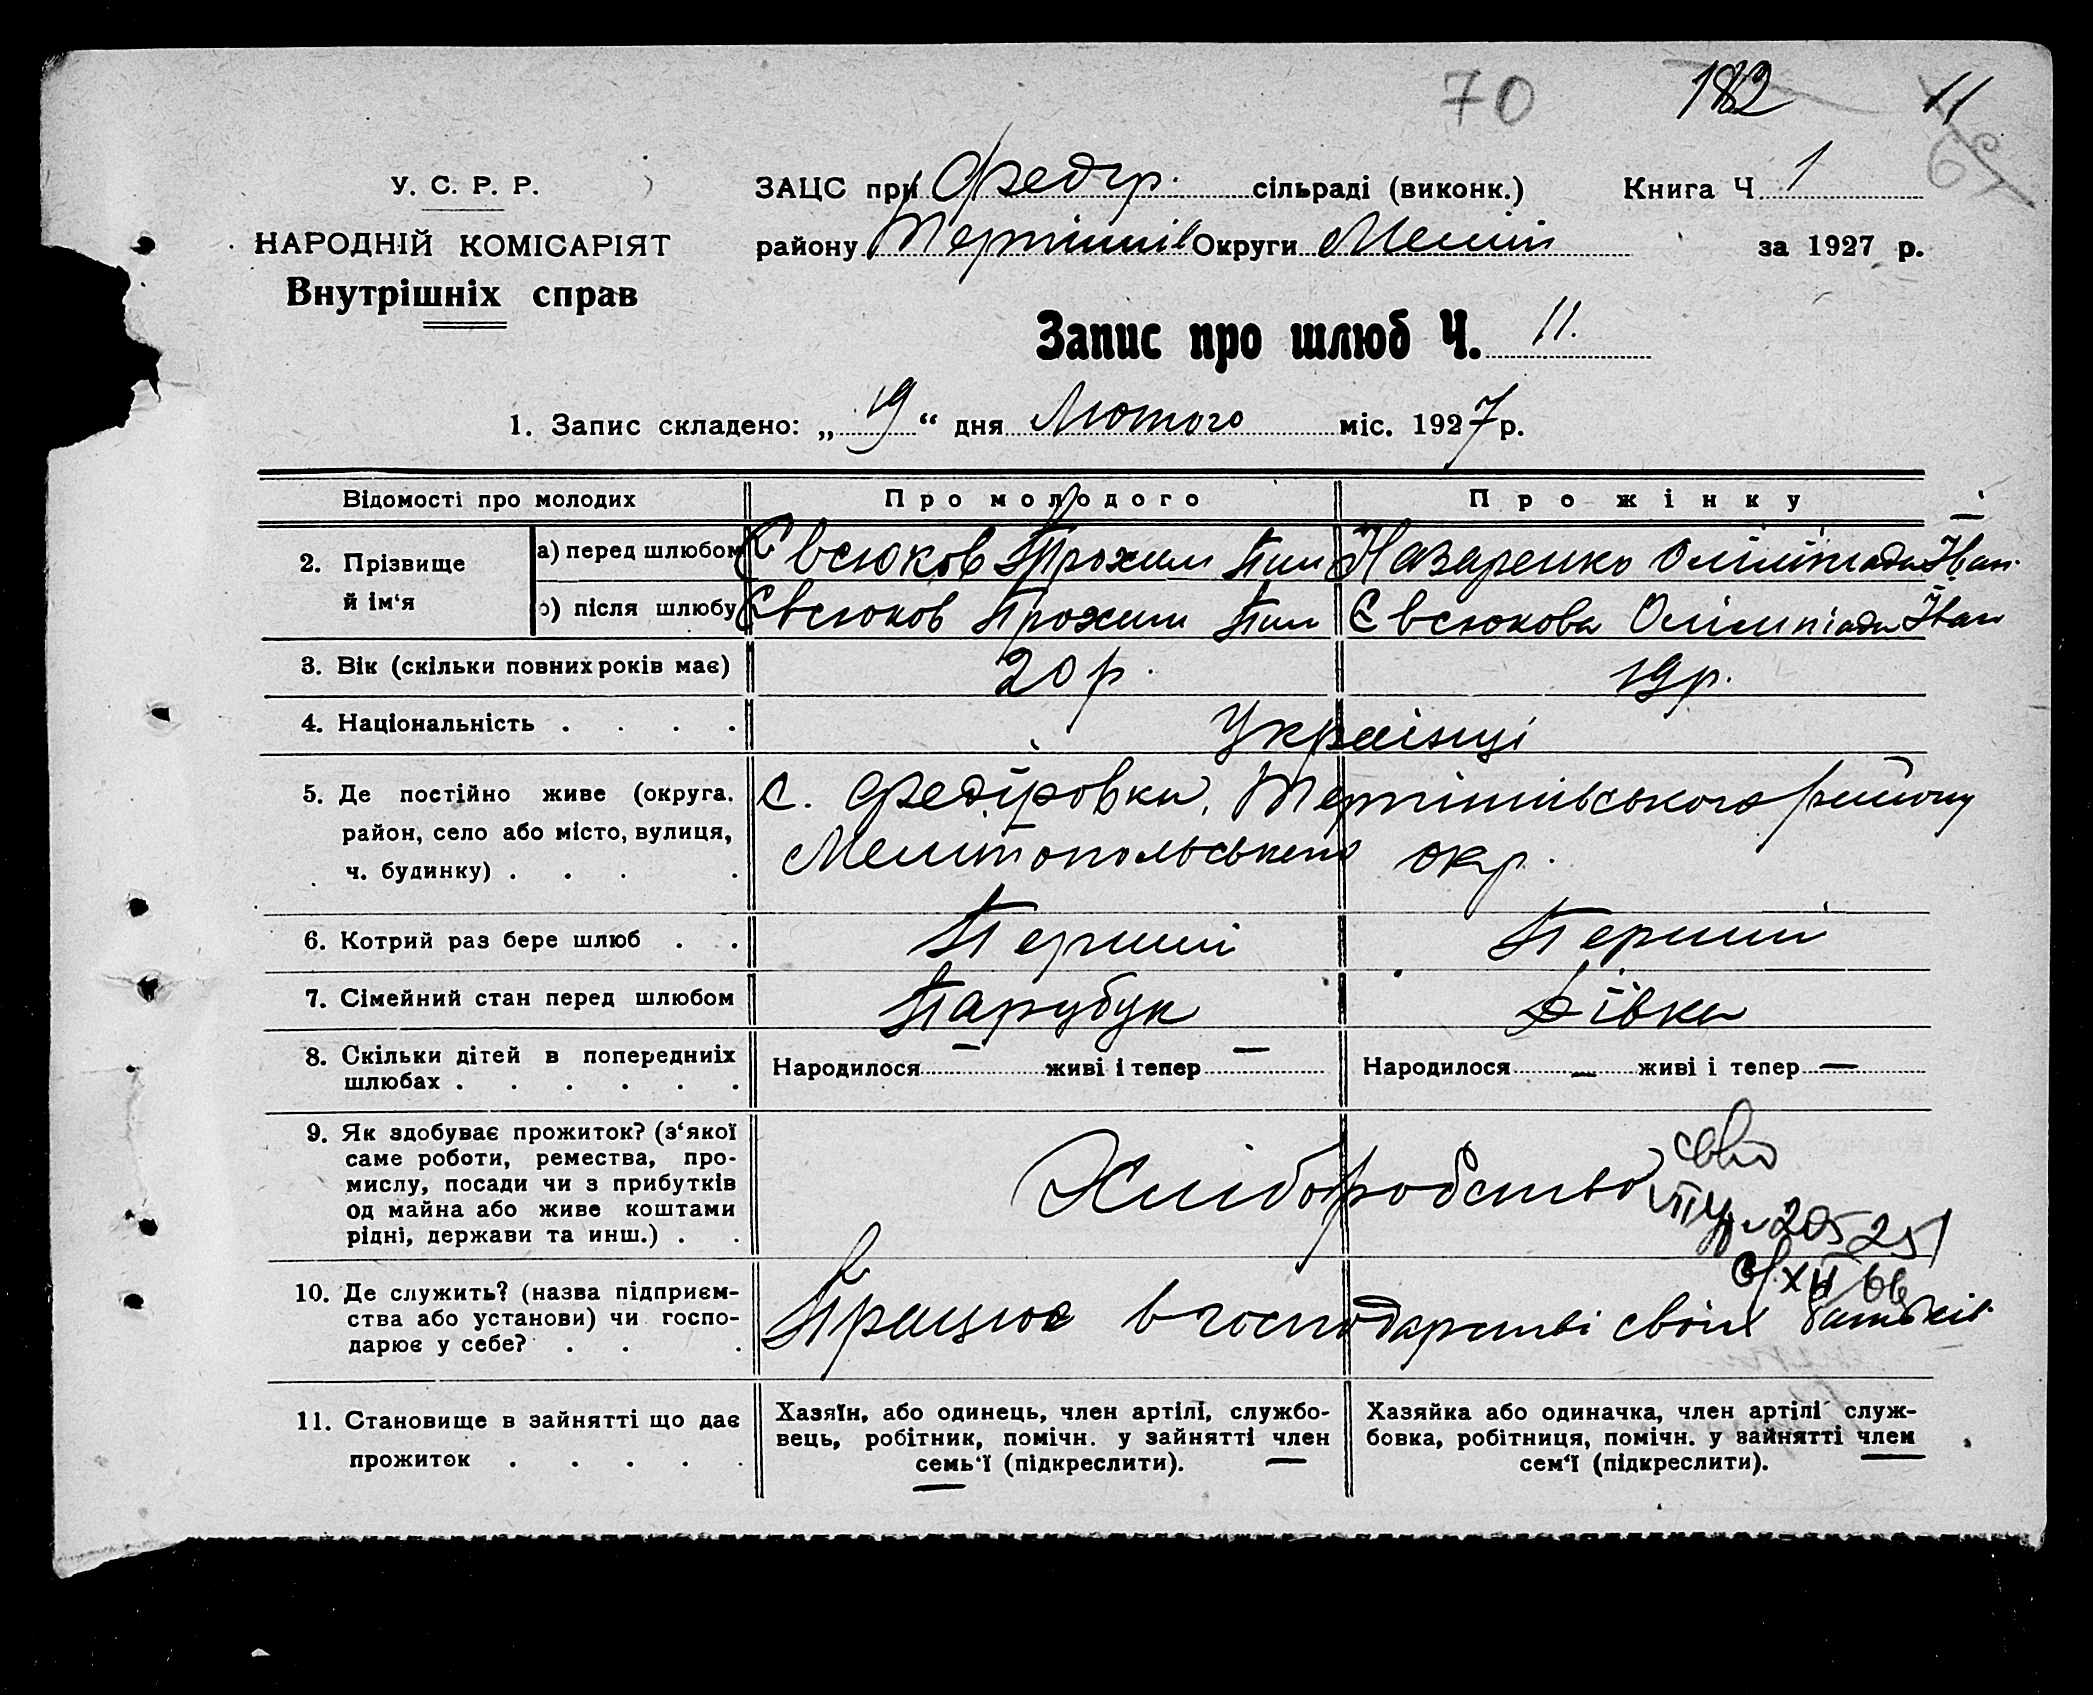 70 182 11
У. С. Р. Р.
НАРОДНІЙ КОМІСАРІЯТ
Внутрішніх справ
ЗАЦС при Федір. сільраді (виконк.) Книга Ч 1
району Терпіннів Округи Меліт за 1927 р.
Запис про шлюб Ч. 11.
1. Запис складено: „19“ дня Лютого міс. 1927 р.
Відомості про молодих Про молодого Про жінку
2. Прізвище й ім‘я
а) перед шлюбом Євсюков Прохим Пим Назаренко Олімпіада Іван.
б) після шлюбу Євсюков Прохим Пим Євсюкова Олімпіада Іван
3. Вік (скільки повних років має) 20 р. 19 р.
4. Національність . . . . Українці
5. Де постійно живе (округа, с. Федіровки, Терпіннівського району
район, село або місто, вулиця, Мелітопольського окр.
ч. будинку) . . . .
6. Котрий раз бере шлюб . . Перший Перший
7. Сімейний стан перед шлюбом Парубук Дівка
8. Скільки дітей в попередниіх
шлюбах . . . . . . Народилося — живі і тепер — Народилося — живі і тепер —
9. Як здобуває прожиток? (з‘якої
саме роботи, ремества, про-
мислу, посади чи з прибутків Хліборобство
од майна або живе коштами
рідні, держави та инш.) . . 205251
10. Де служить? (назва підприєм-
ства або установи) чи госпо- Працює в господарстві своїх батьків
дарює у себе? . . .
11. Становище в зайнятті що дає
прожиток . . . . .
Хазяїн, або одинець, член артілі, службо-
вець, робітник, помічн. у зайнятті член
семь‘ї (підкреслити).
Хазяйка або одиначка, член артілі служ-
бовка, робітниця, помічн. у зайнятті член
сем‘ї (підкреслити).